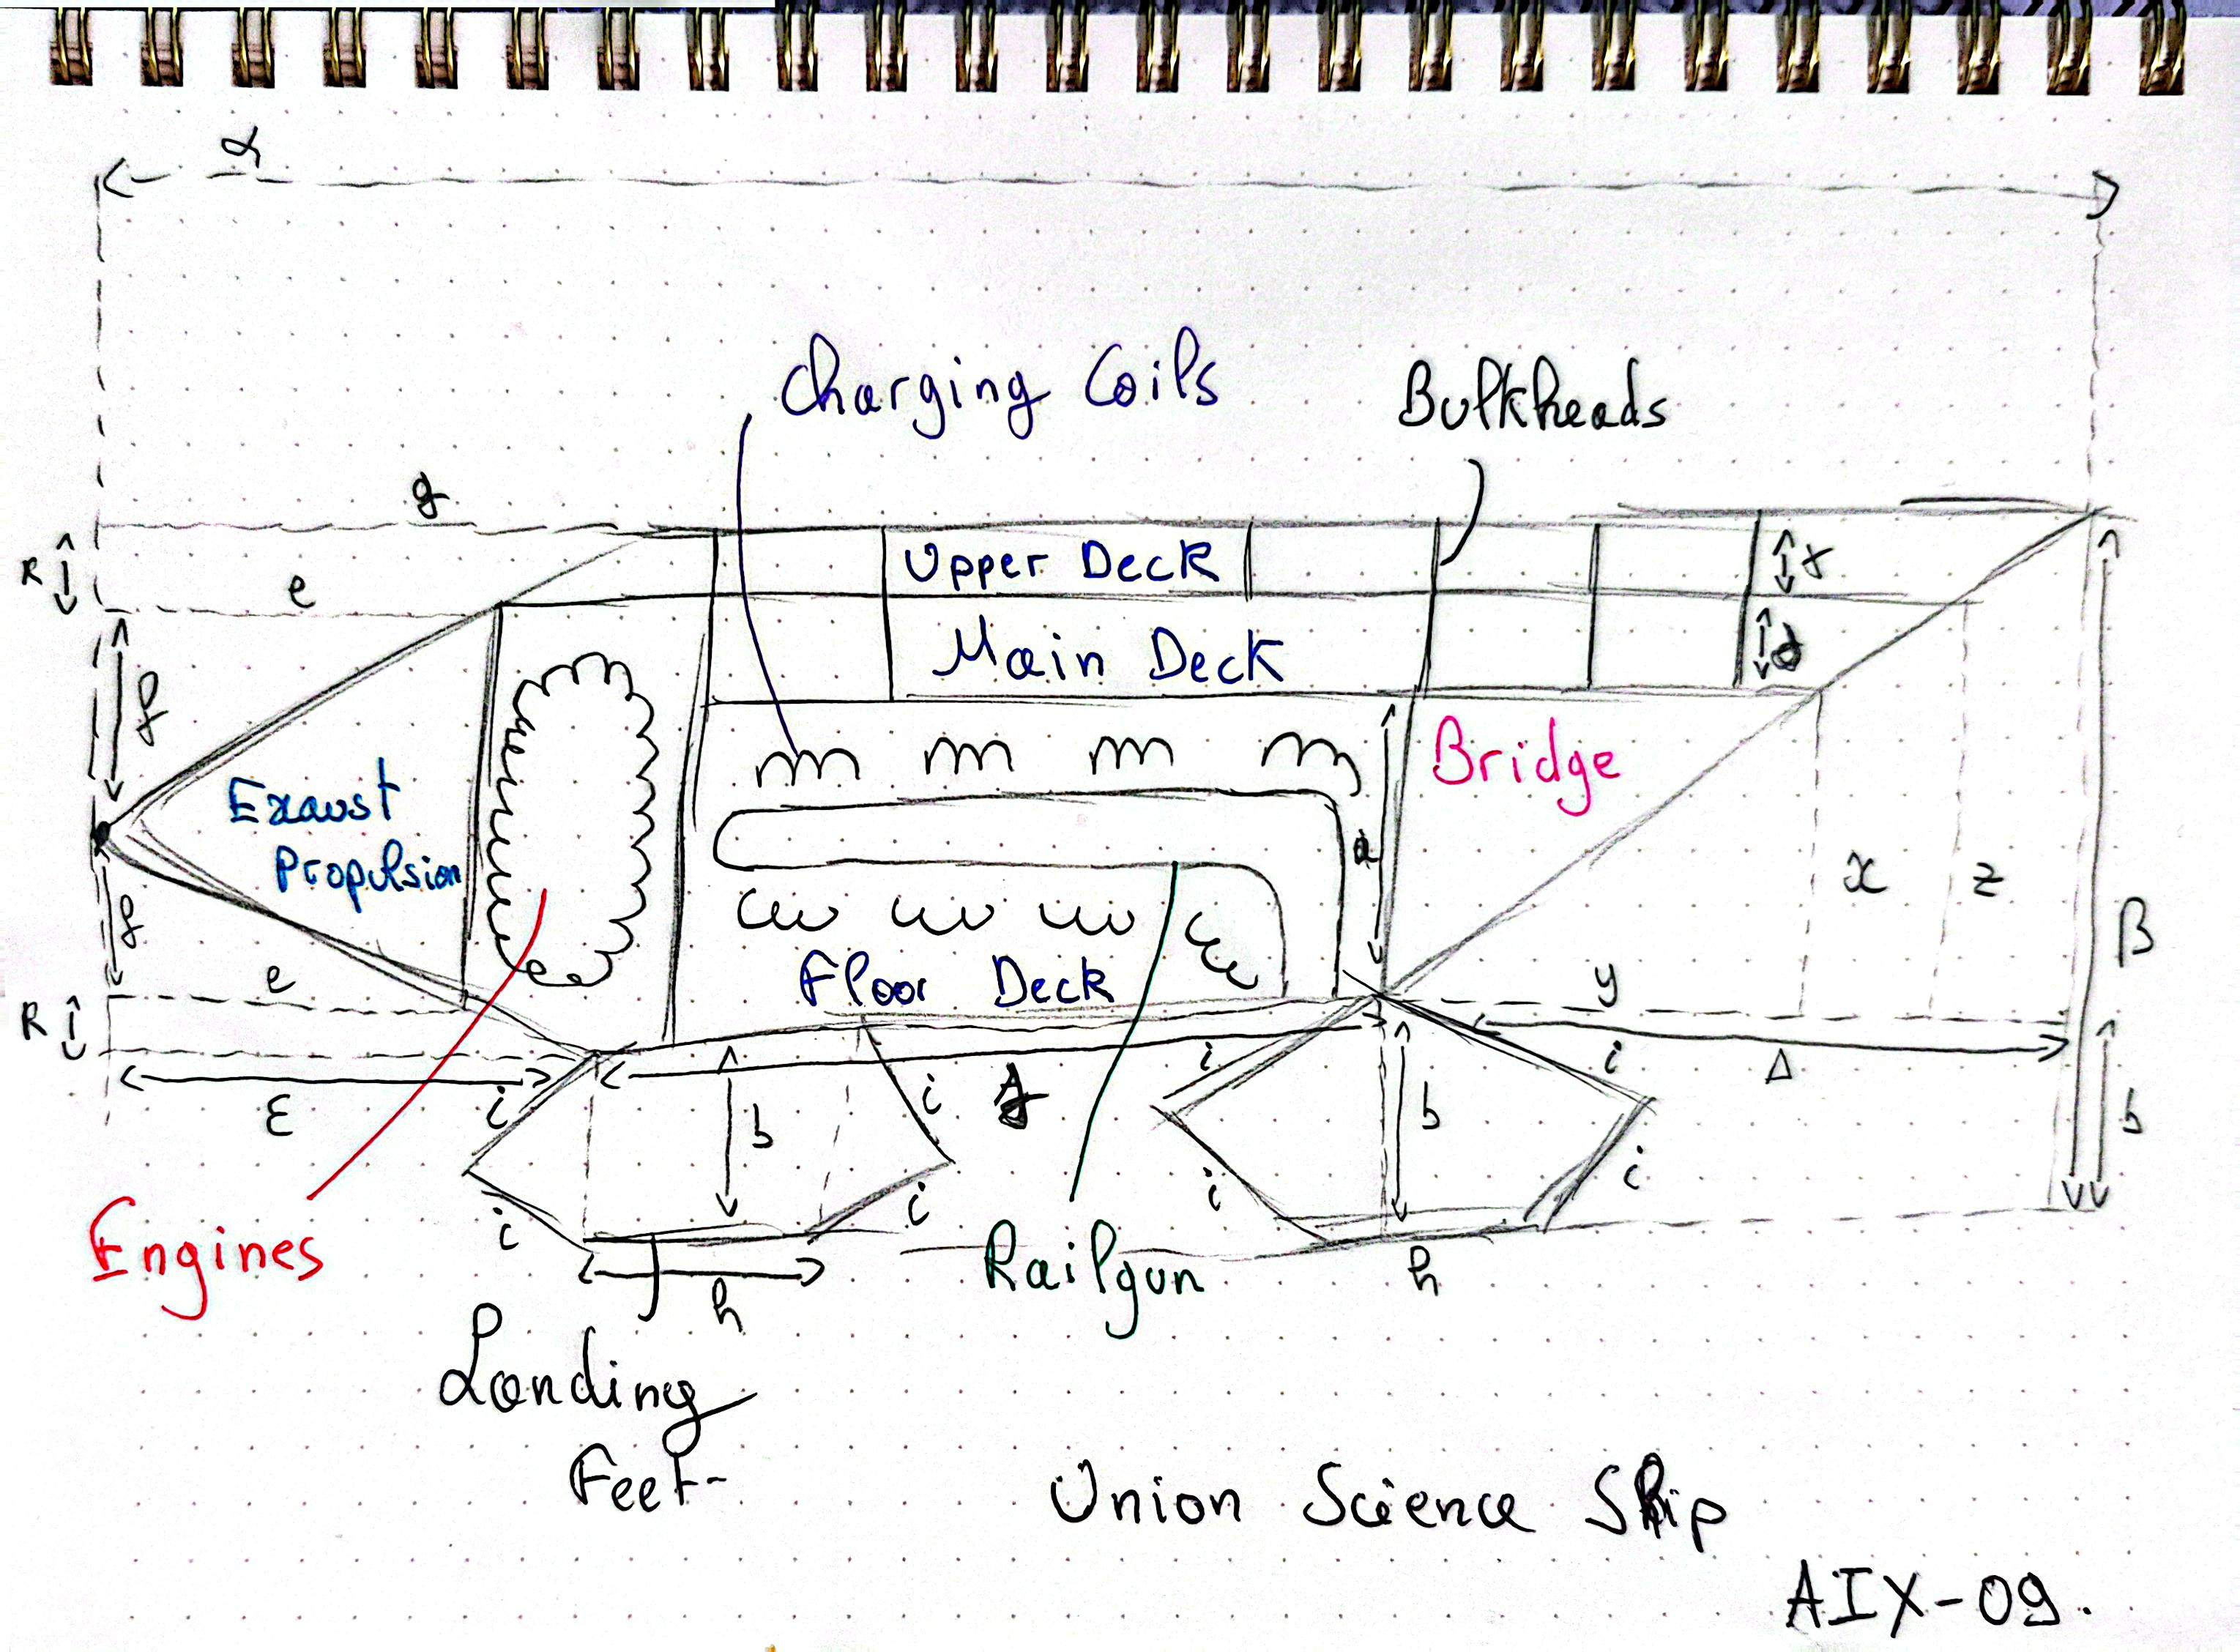 α
Charging Coils
Bulkheads
g
R
e
Upper Deck
γ
Main Deck
d
f
Bridge
Exaust
Propulsion
a
x
z
β
f
Floor Deck
e
y
R
i
i
Δ
ε
i
i
b
b
b
i
i
i
i
Engines
h
Railgun
h
Landing
Feet
Union Science Ship
AIX-09.